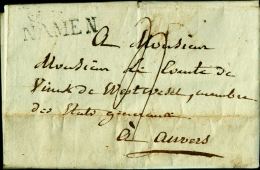 NAMEN
A Monsieur
Monsieur Le Comte de
Vinck de Westwesel, membre
des Etats generaux
à Anvers